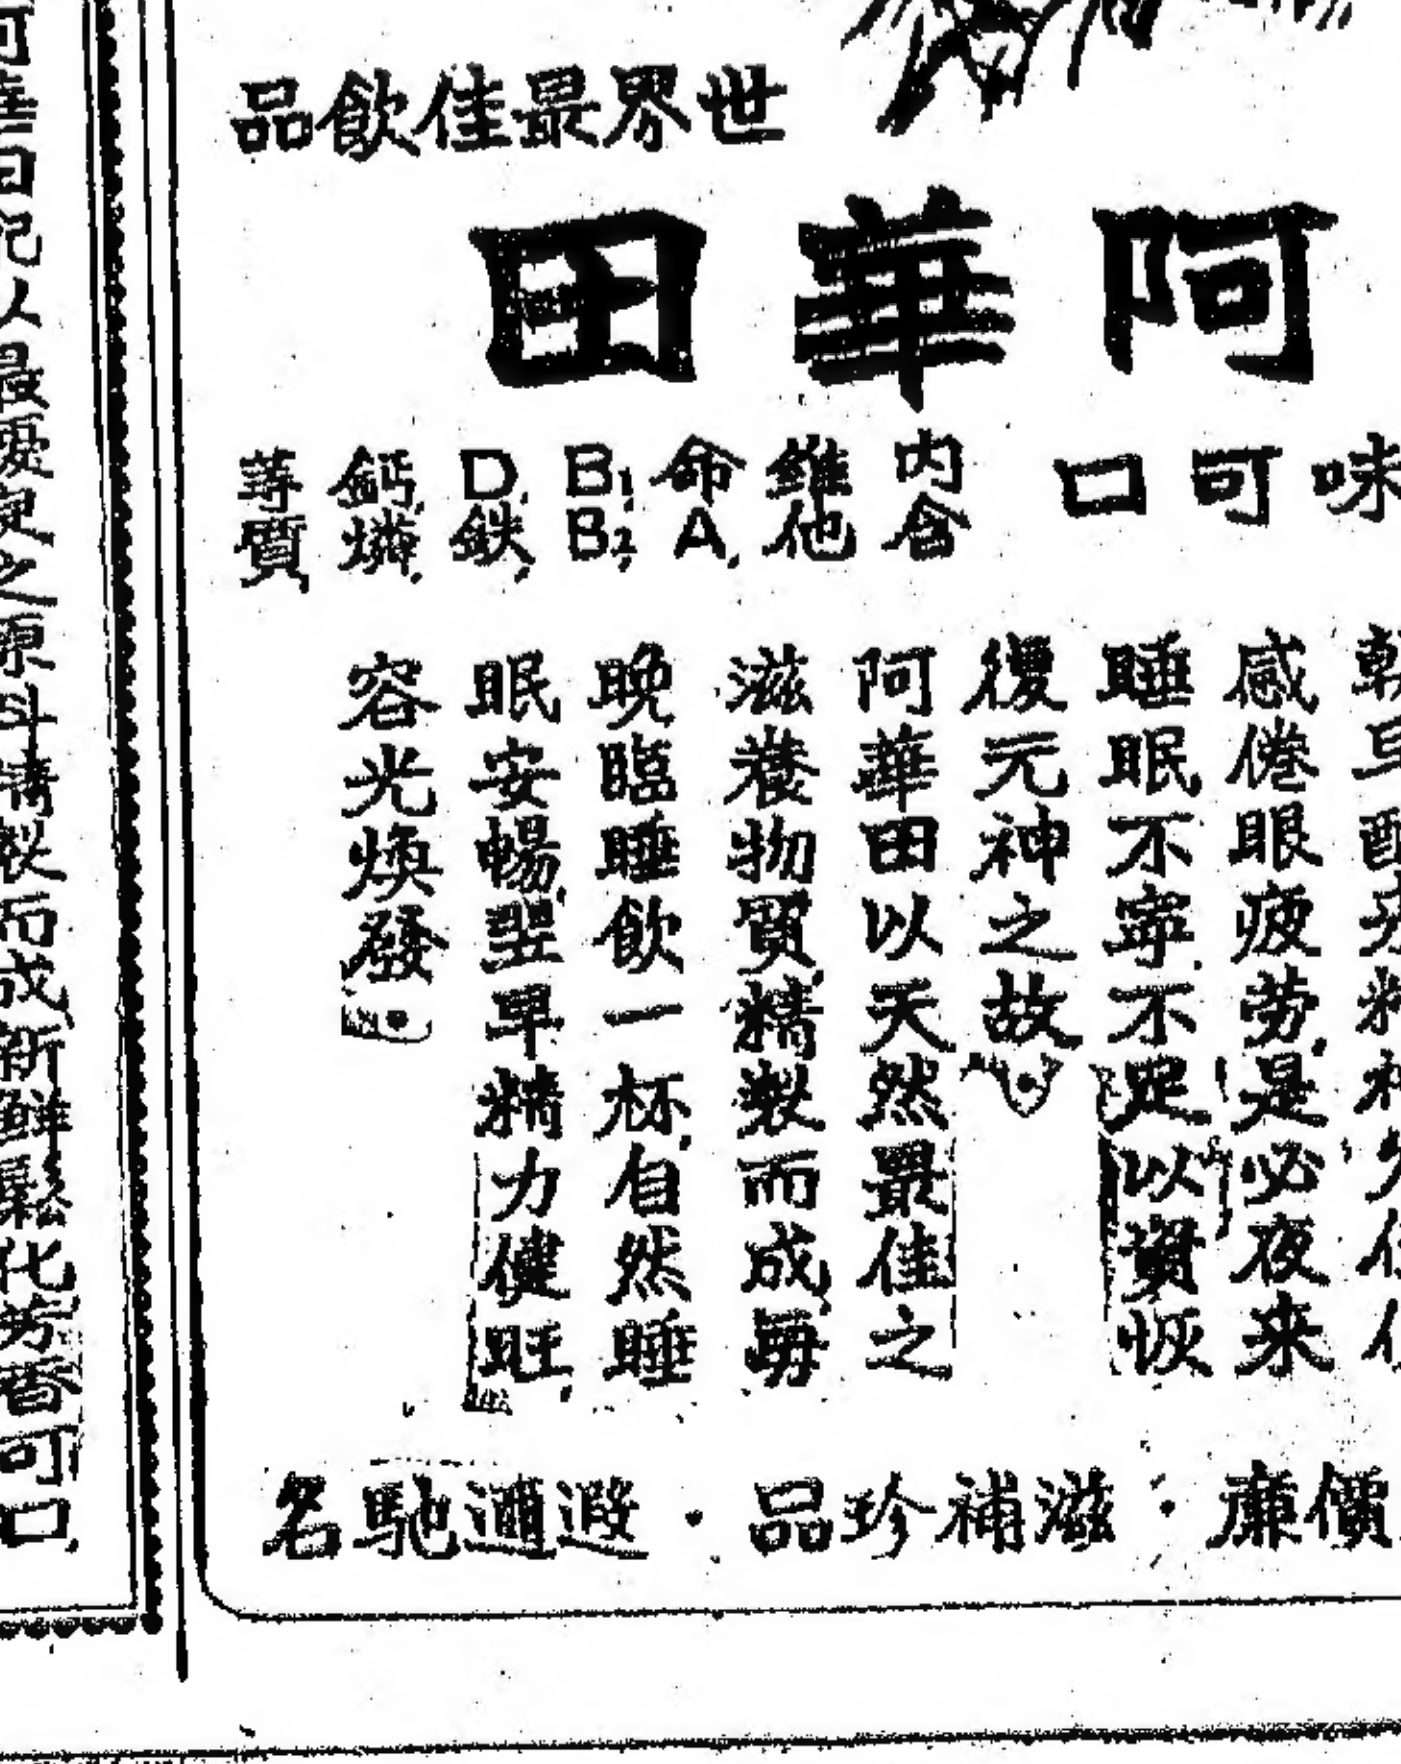 世界最佳飲品
阿華田
味可口
內含
維他
命A,
B1,B2,
D,鉄,
鈣,燐,
等質,
感倦眼疲劳,是必夜来
睡眠不寧,不足以資恢
復元神之故
阿華田以天然最佳之
滋養物質,精製而成,每
晚臨睡飲一杯,自然睡
眠安暢,翌早精力健旺,
容光煥發
價廉・滋補珍品・遐邇馳名
原料精製而成新鮮鬆化芳香可口